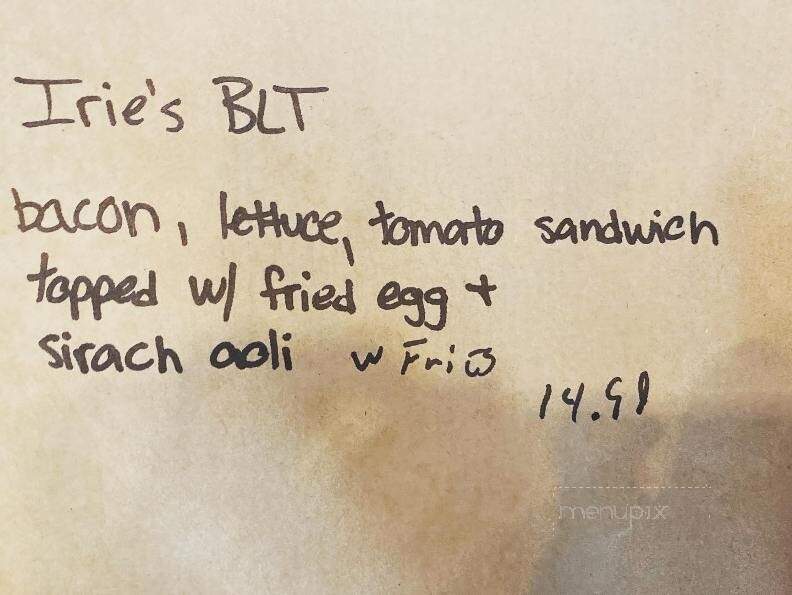 Irie's BLT
bacon, lettuce, tomato sandwich
topped w/ fried egg +
sirach aoli w Fries
menupix